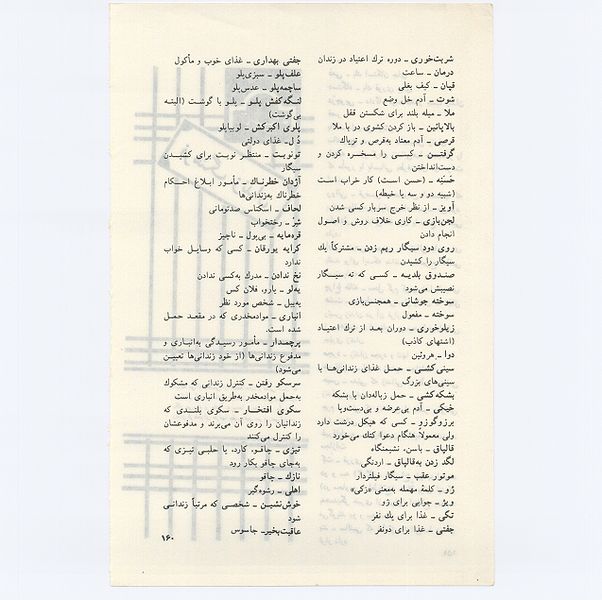 شربت‌خوری ـ دوره ترك اعتیاد در زندان
درمان ـ ساعت
قپان ـ کیف بغلی
شوت ـ آدم خل وضع
ملا ـ میله بلند برای شکستن قفل
بالاپائین ـ باز کردن کشوی در با ملا
قرصی ـ آدم معتاد به‌قرص و تریاك
گرفتــن ـ کســی را مسخــره کردن و
دست‌انداختن
حَسَنِه ـ (حسن اســت) کار خراب اسـت
(شبیه دو و سه یا خیطه)
آویز ـ از نظر خرج سربار کسی شدن
لجن‌بازی ـ کاری خلاف روش و اصـول
انجام دادن
روی دود سیگار ریم زدن ـ مشترکاً یك
سیگار را کشیدن
صنـدوق بلدیـه ـ کسـی که ته سیـگار
نصیبش می‌شود
سوخته جوشانی ـ همجنس‌بازی
سوخته ـ مفعول
زیلوخوری ـ دوران بعـد از ترك اعتیـاد
(اشتهای کاذب)
دوا ـ هروئین
سینی‌کشـی ـ حمـل غذای زندانی‌هـا با
سینی‌های بزرگ
بشکه‌کشی ـ حمل زباله‌دان یا بشکه
خیکی ـ آدم بی‌عرضه و بی‌دست‌وپا
برزوگوزو ـ کسی که هیکل درشت دارد
ولی معمولاً هنگام دعوا کتك می‌خورد
قالپاق ـ باسن، نشیمنگاه
لگد زدن به‌قالپاق ـ اردنگی
موتور عقب ـ سیگار فیلتردار
زُو ـ کلمهٔ مهمله به‌معنی «زکی»
ویژ ـ جوابی برای زو
تکی ـ غذا برای یك نفر
جفتی ـ غذا برای دونفر
جفتی بهداری ـ غذای خوب و مأکول
علف‌پلو ـ سبزی‌پلو
ساچمه‌پلو ـ عدس‌پلو
لنـگه‌کفش پلـو ـ پلـو با گوشـت (البتـه
بی‌گوشت)
پلوی اکبرکش ـ لوبیاپلو
دُل ـ غذای دولتی
تونوبـت ـ منتظـر نوبـت برای کشیــدن
سیگار
آژدان خطرنـاك ـ مأمـور ابـلاغ احکـام
خطرناك به‌زندانی‌ها
لحاف ـ اسکناس صدتومانی
رختخواب
قره‌مایه ـ بی‌پول ـ ناچیز
کرایه یورقان ـ کسی که وسایـل خواب
ندارد
نخ ندادن ـ مدرك به‌کسی ندادن
یه‌لو ـ یارو، فلان کس
یه‌بیل ـ شخص مورد نظر
انباری ـ موادمخدری که در مقعـد حمـل
شده است.
پرچمـدار ـ مأمـور رسیـدگی به‌انباری و
مدفوع زندانی‌ها (از خود زندانی‌ها تعییـن
می‌شود)
سرسکو رفتن ـ کنترل زندانی که مشکوك
به‌حمل موادمخدر به‌طریق انباری است
سکوی افتخـار ـ سکوی بلنـدی که
زندانیان را روی آن می‌برند و مدفوعشان
را کنترل می‌کنند
تیزی ـ چاقـو، کارد، یا حلبـی تیـزی که
به‌جای چاقو بکار رود
نازك ـ چاقو
اهلی ـ رشوه‌گیر
خوش‌نشیـن ـ شخصـی که مرتباً زندانـی
شود
عاقبت‌بخیر ـ جاسوس
۱۶۰